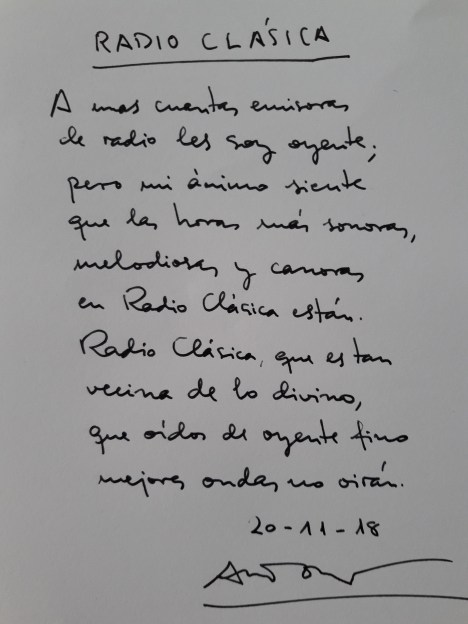 RADIO CLÁSICA
A unas cuantas emisoras
de radio les soy oyente;
pero mi ánimo siente
que las horas más sonoras,
melodiosas y canoras
en Radio Clásica están.
Radio Clásica, que es tan
vecina de lo divino,
que oídos de oyente fino
mejores ondas no oirán.
20-11-18